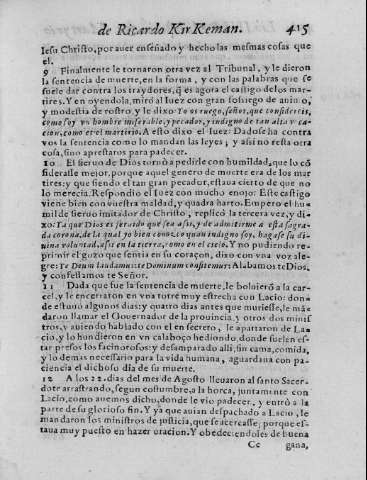 de Ricardo KirKeman. 415
Iesu Christo, por auer enseñado y hecho las mesmas cosas que
el.
9 Finalmente le tornaron otra vez al Tribunal, y le dieron
la sentencia de muerte, en la forma, y con las palabras que se
suele dar contra los traydores, q̃ es agora el castigo de los mar-
tires. Y en oyendola, mirò al Iuez con gran sosiego de animo,
y modestia de rostro, y le dixo: Yo os ruego, señor, que considereis,
como soy vn hombre miserable, y pecador, y indigno de tan alta vo-
cacion, como es el martirio. A esto dixo el Iuez: Dadose ha contra
vos la sentencia como lo mandan las leyes, y assi no resta otra
cosa, sino aprestaros para padecer.
10 El sieruo de Dios tornò a pedirle con humildad, que lo cõ
siderasse mejor, porque aquel genero de muerte era de los mar
tires: y que siendo el tan gran pecador, estaua cierto de que no
lo merecia. Respondio el Iuez con mucho enojo: Este castigo
viene bien con vuestra maldad, y quadra harto. Empero el hu-
milde sieruo imitador de Christo, replicò la tercera vez, y di-
xo: Ya que Dios es seruido que sea assi, y de admitirme a esta sagra-
da corona, de la qual yo bien conozco quan indigno soy, hagase su di-
uina voluntad, assi en la tierra, como en el cielo. Y no pudiendo re-
primir el gozo que sentia en su coraçon, dixo con vna voz ale-
gre: Te Deum laudamus: te Dominum confitemur: Alabamos te Dios,
y confessamos te Señor.
11 Dada que fue la sentencia de muerte, le boluierò a la car-
cel, y le encerraron en vna torre muy estrecha con Lacio: don-
de estuuo algunos dias: y quatro dias antes que muriesse, le mã
daron llamar el Gouernador de la prouincia, y otros dos minis-
tros, y auiendo hablado con el en secreto, le apartaron de La-
cio, y lo hundieron en vn calaboço hediondo, donde suelen es-
tar presos los facinorosos: y desamparado alli, sin cama, comida,
y lo demas necessario para la vida humana, aguardaua con pa-
ciencia el dichoso dia de su muerte.
12 A los 22. dias del mes de Agosto lleuaron al santo Sacer-
dote arrastrando, segun costumbre, a la horca, juntamente con
Lacio, como auemos dicho, donde le vio padecer, y entrò a la
parte de su glorioso fin. Y ya que auian despachado a Lacio, le
mandaron los ministros de justicia, que se acercasse; porque es-
taua muy puesto en hazer oracion. Y obedeciendoles de buena
Cc gana,